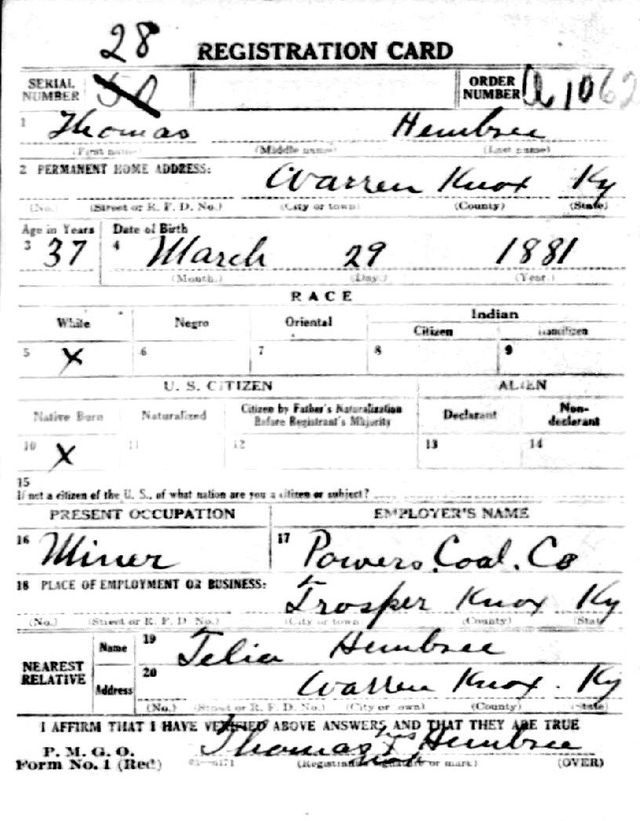 28
REGISTRATION CARD
SERIAL NUMBER 50 ORDER NUMBER A 1062
1 Thomas Hembree
(First name) (Middle name) (Last name)
2 PERMANENT HOME ADDRESS: Warren Knox Ky
(No.) (Street or R. F. D. No.) (City or town) (County) (State)
Age in Years Date of Birth
3 37 4 March 29 1881
(Month.) (Day.) (Year.)
RACE
White Negro Oriental Indian
Citizen Noncitizen
5 X 6 7 8 9
U. S. CITIZEN ALIEN
Native Born Naturalized Citizen by Father's Naturalization Before Registrant's Majority Declarant Non-declarant
10 X 11 12 13 14
15
If not a citizen of the U. S., of what nation are you a citizen or subject?
PRESENT OCCUPATION EMPLOYER'S NAME
16 Miner 17 Powers Coal. Co
18 PLACE OF EMPLOYMENT OR BUSINESS:
Trosper Knox Ky
(No.) (Street or R. F. D. No.) (City or town) (County) (State)
NEAREST RELATIVE Name 19 Telia Hembree
Address 20 Warren Knox. Ky
(No.) (Street or R. F. D. No.) (City or town) (County) (State)
I AFFIRM THAT I HAVE VERIFIED ABOVE ANSWERS AND THAT THEY ARE TRUE
P. M. G. O.
Form No. 1 (Red) Thomas X his mark Hembree
(Registrant's signature or mark) (OVER)